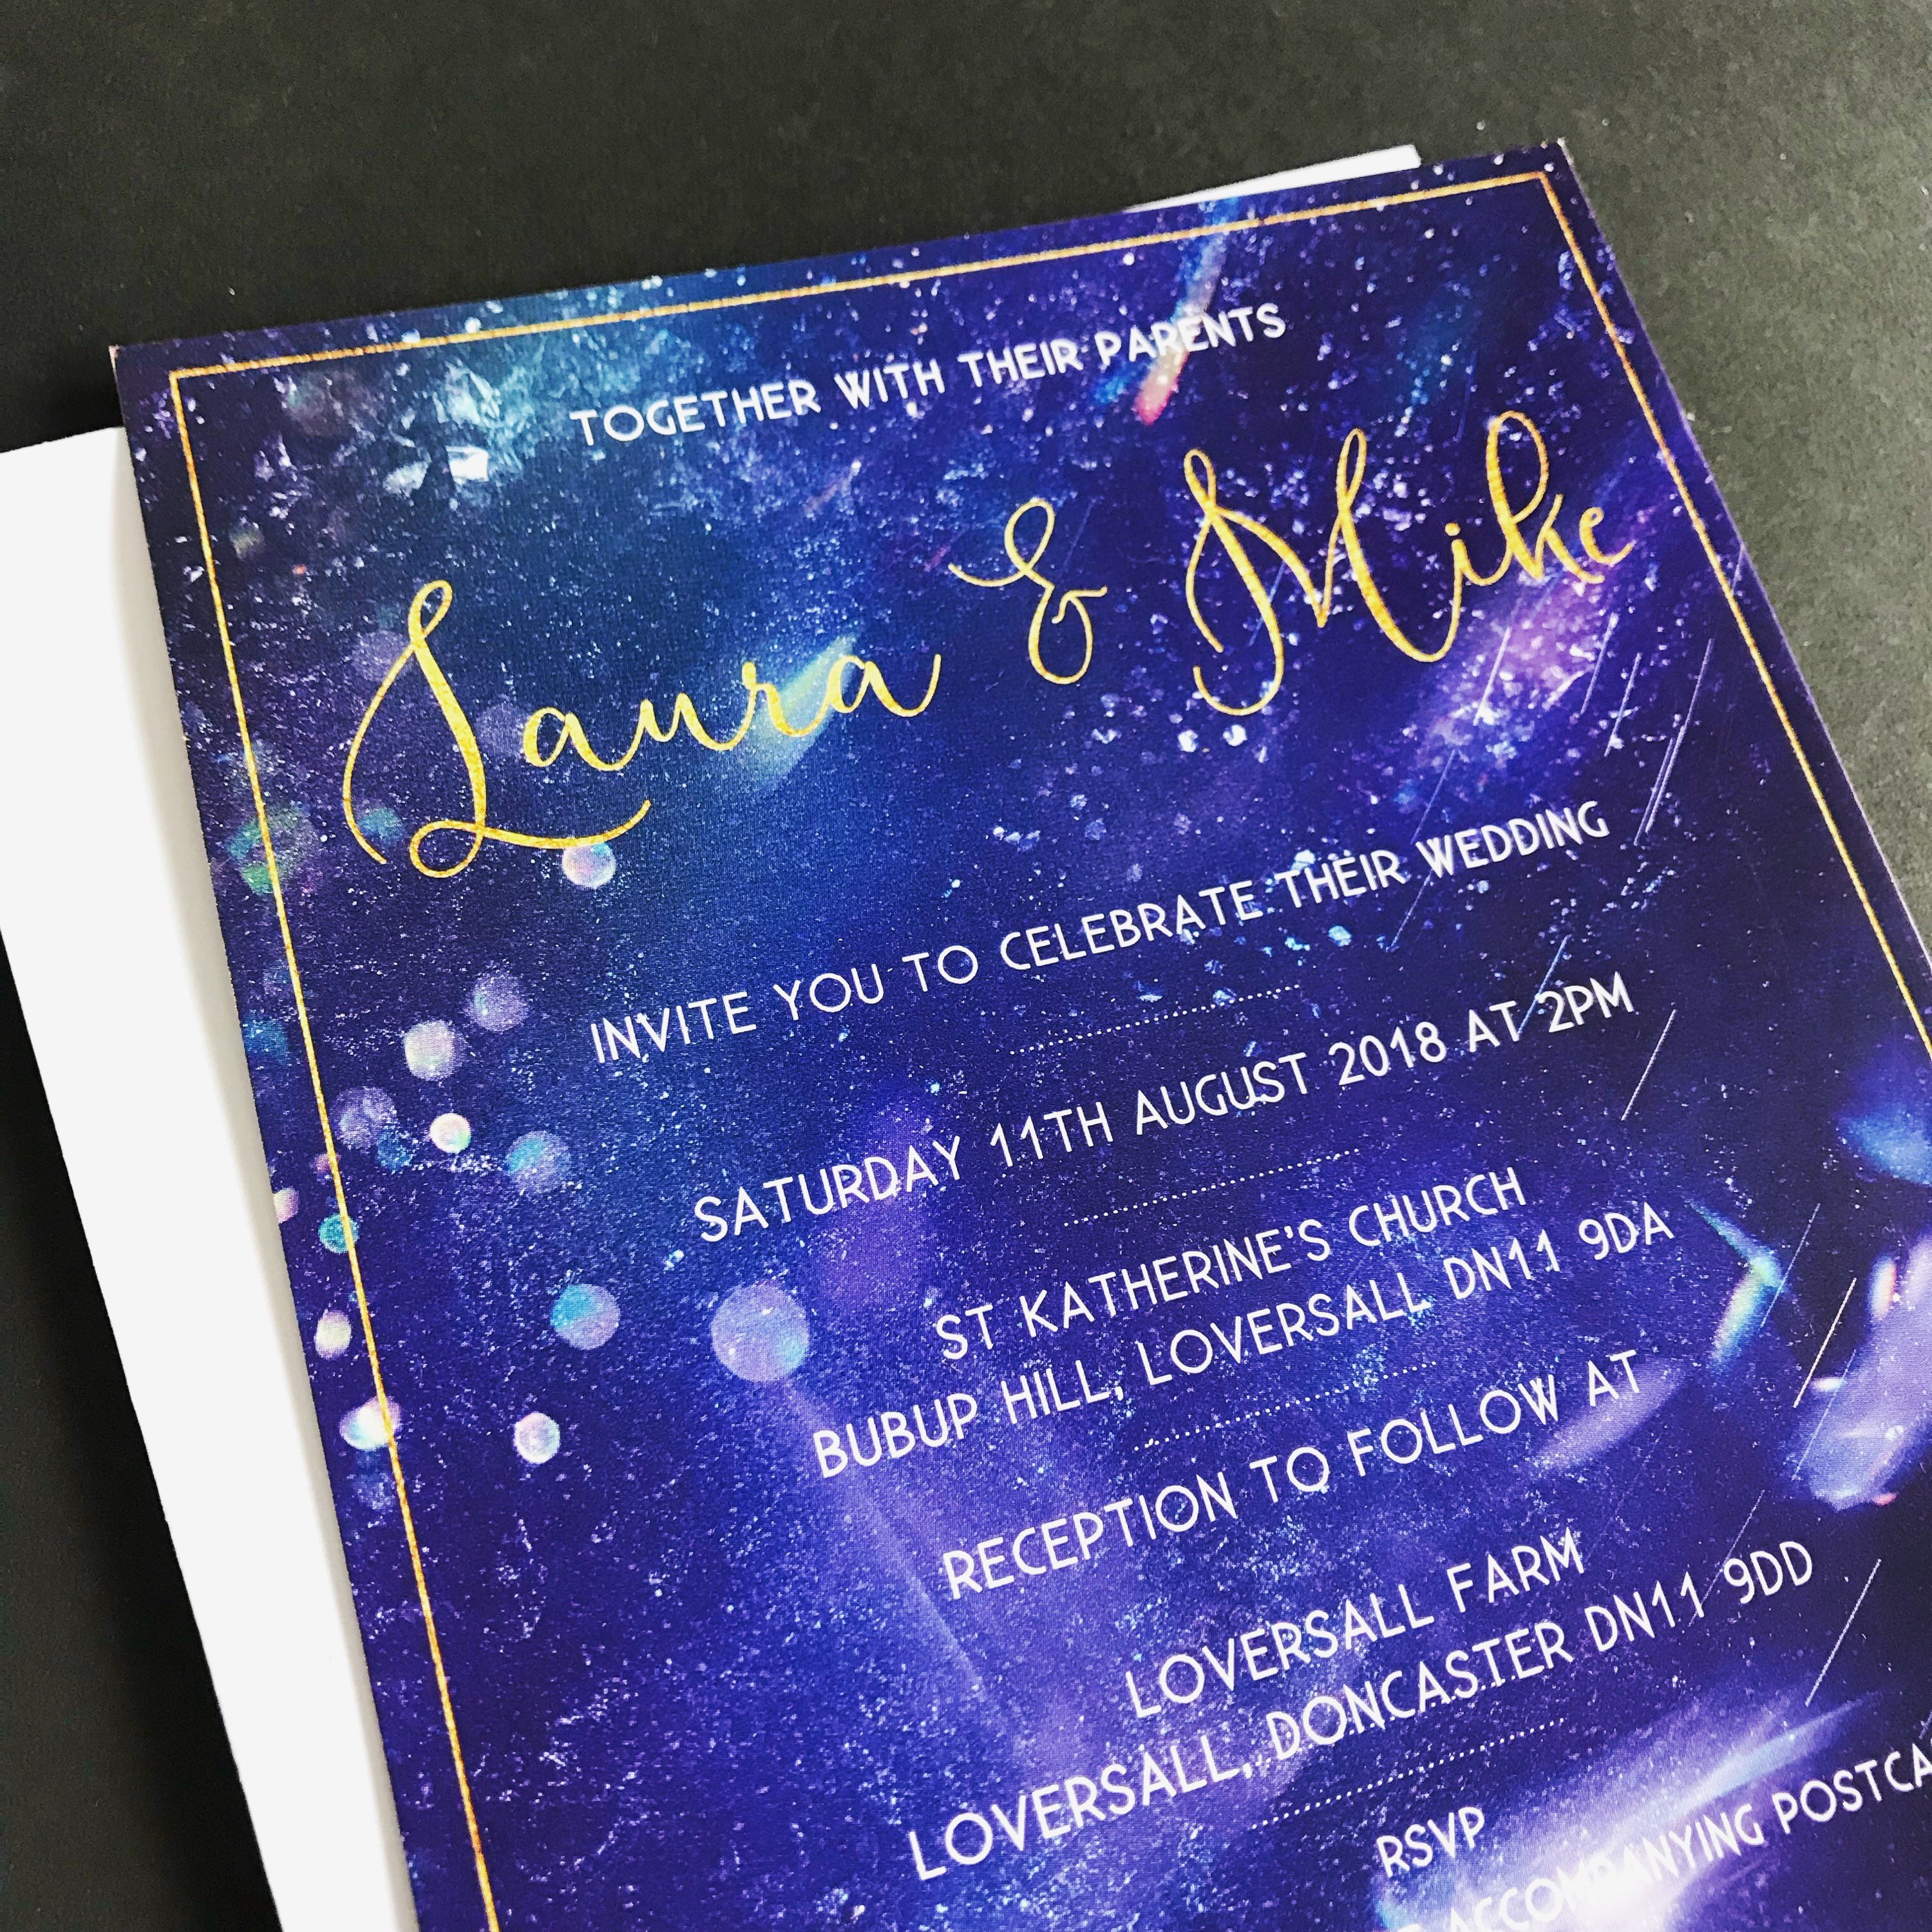 TOGETHER WITH THEIR PARENTS
Laura & Mike
INVITE YOU TO CELEBRATE THEIR WEDDING
SATURDAY 11TH AUGUST 2018 AT 2PM
ST KATHERINE'S CHURCH
BUBUP HILL, LOVERSALL DN11 9DA
RECEPTION TO FOLLOW AT
LOVERSALL FARM
LOVERSALL, DONCASTER DN11 9DD
RSVP
ACCOMPANYING